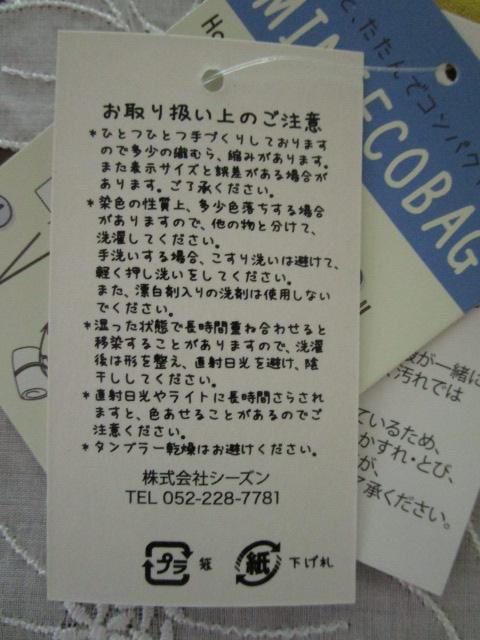 お取り扱い上のご注意
*ひとつひとつ手づくりしております
ので多少の織むら、縮みがあります。
また表示サイズと誤差がある場合が
あります。ご了承ください。
*染色の性質上、多少色落ちする場合
がありますので、他の物と分けて、
洗濯してください。
手洗いする場合、こすり洗いは避けて、
軽く押し洗いをしてください。
また、漂白剤入りの洗剤は使用しない
でください。
*湿った状態で長時間重ね合わせると
移染することがありますので、洗濯
後は形を整え、直射日光を避け、陰
干ししてください。
*直射日光やライトに長時間さらされ
ますと、色あせることがあるのでご
注意ください。
*タンブラー乾燥はお避けください。
株式会社シーズン
TEL 052-228-7781
プラ
紙 下げ札
と、たたんでコンパク
MINI ECOBAG
が一緒に
汚れでは
ているため、
かすれ・とび、
が、
了承ください。